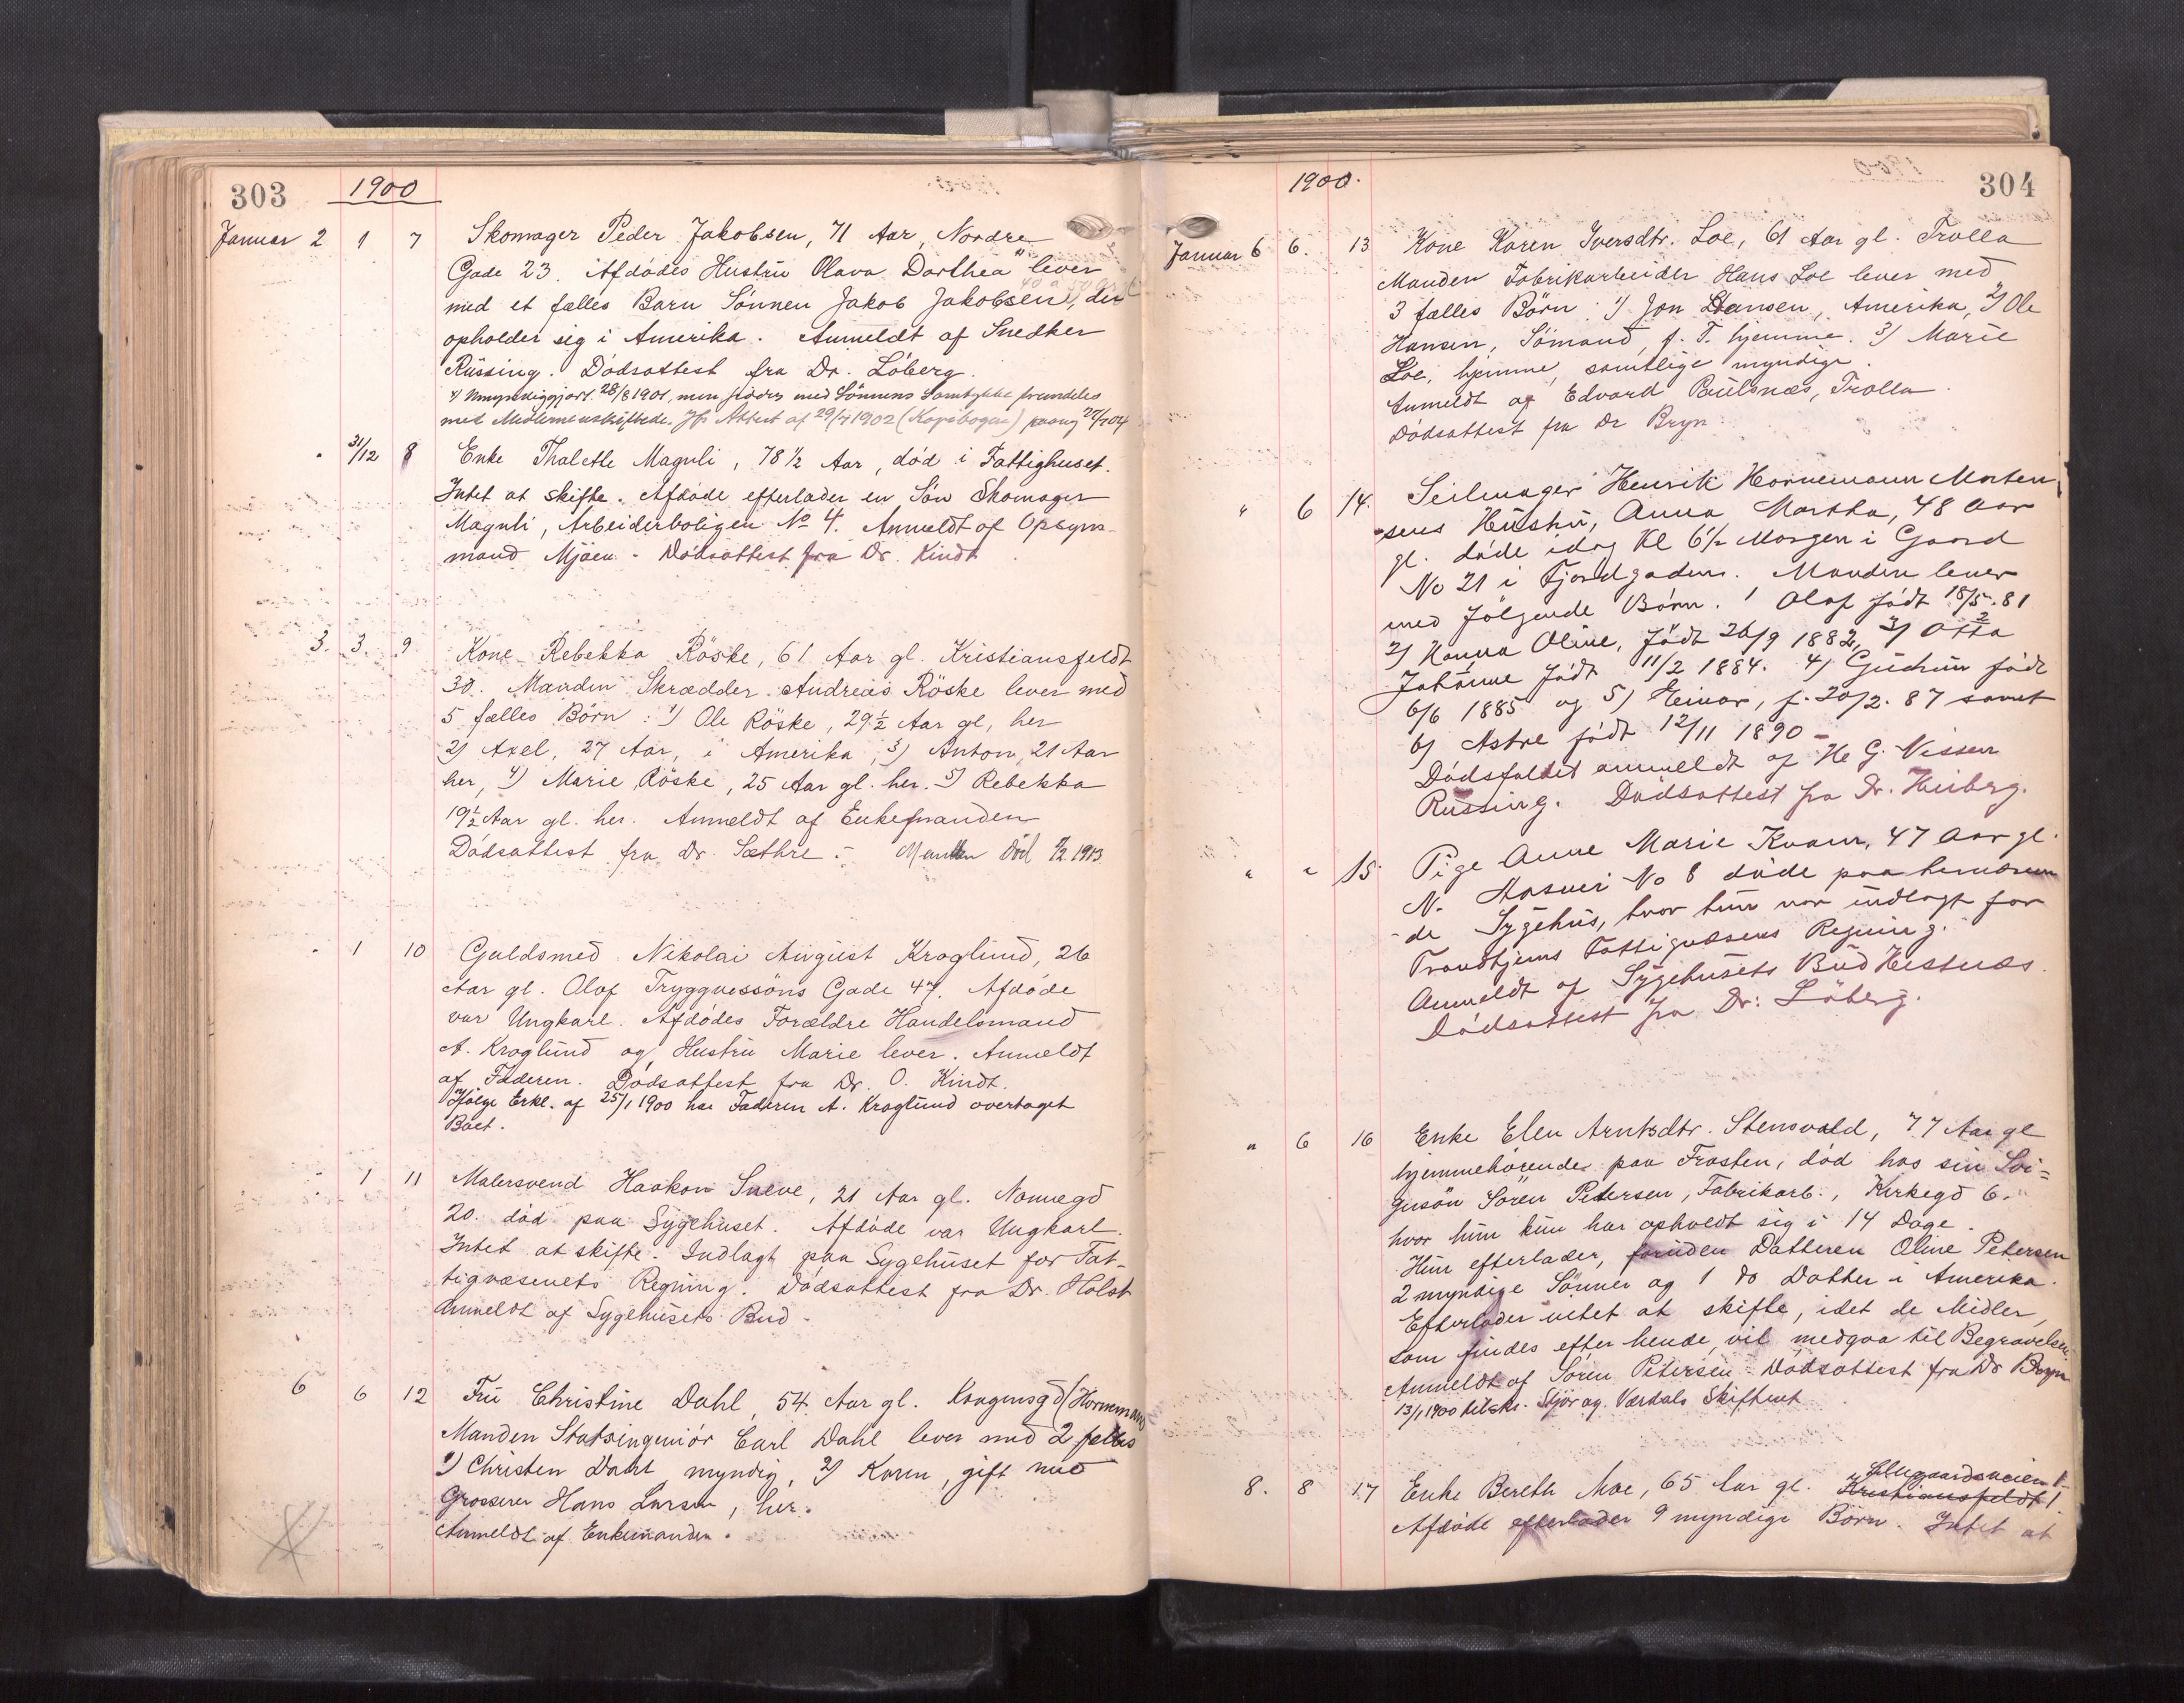 303
1900
Januar 2 1 7 Skomager Peder Jakobsen, 71 Aar, Nordre
Gade 23. Afdödes Hustru Olava Dorthea lever
med et fælles Barn Sönnen Jakob Jakobsen, der
opholder sig i Amerika. Anmeldt af Snedker
Rüssing. Dödsattest fra Dr. Löberg.
28/8 1901, men med Sönnens Samtykke
med Attest af 29/4 1902 (Kopibogen)
" 31/12 8 Enke Thalette Maguli, 78 1/2 Aar, död i Fattighuset.
Intet at skifte. Afdöde efterlader en Sön Skomager
Maguli, Arbeiderboligen No 4. Anmeldt af Opsyns-
mand Mjöen. Dödsattest fra Dr. Kindt
3. 3. 9 Kone Rebekka Röske, 61 Aar gl. Kristiansfeldt
30. Manden Skrædder Andreas Röske lever med
5 fælles Börn: 1) Ole Röske, 29 1/2 Aar gl, her
2) Axel, 27 Aar, i Amerika, 3) Anton, 21 Aar
her, 4) Marie Röske, 25 Aar gl. her. 5) Rebekka
19 1/2 Aar gl. her. Anmeldt af Enkemanden
Dödsattest fra Dr. Sæthre. Manden död 1913
" 1 10 Guldsmed Nikolai August Kroglund, 26
Aar gl. Olaf Tryggvessöns Gade 47. Afdöde
var Ungkarl. Afdödes Forældre Handelsmand
A. Kroglund og Hustru Marie lever. Anmeldt
af Faderen. Dödsattest fra Dr. O. Kindt.
Ifölge Erkl. af 25/1 1900 har Faderen A. Kroglund overtaget
Boet.
" 1 11 Malersvend Haakon Sneve, 21 Aar gl. Nonnegd
20. död paa Sygehuset. Afdöde var Ungkarl.
Intet at skifte. Indlagt paa Sygehuset for Fat-
tigvæsenets Regning. Dödsattest fra Dr. Holst
Anmeldt af Sygehusets Bud.
6 6 12 Fru Christine Dahl, 54 Aar gl. Kongensgd (Hornemans
Manden Statsingeniör Carl Dahl lever med 2 fælles
1) Christen Dahl myndig, 2) Karen, gift med
Grosserer Hans Larsen, her.
Anmeldt af Enkemanden.
304
1900.
Januar 6 6. 13 Kone Karen Iversdtr. Loe, 61 Aar gl. Trolla
Manden Fabrikarbeider Hans Loe lever med
3 fælles Börn: 1) Jon Hansen, Amerika, 2) Ole
Hansen, Sömand, p. T. hjemme. 3) Marie
Loe, hjemme, samtlige myndige.
Anmeldt af Edvard Paulsnæs, Trolla.
Dödsattest fra Dr Bryn
" 6 14. Seilmager Henrik Hornemann Morten-
sens Hustru, Anna Martha, 48 Aar
gl. döde idag Kl 6 1/2 Morgen i Gaard
No 21 i Fjordgaden. Manden lever
med fölgende Börn. 1 Olaf födt 18/5. 81
2) Hanna Oline, födt 26/9 1882, 3) Otta
Johanne födt 11/2 1884. 4) Gudrun födt
6/6 1885 og 5) Einar, f. 20/2. 87 samt
6) Astre födt 12/11 1890 -
Dödsfaldet anmeldt af H. G. Nissen
Rüssing. Dödsattest fra Dr. Heiberg.
" " 15 Pige Anne Marie Kvam, 47 Aar gl.
N. Aasvei No 8 döde paa herværen-
de Sygehus, hvor hun var indlagt for
Trondhjems Fattigvæsens Regning.
Anmeldt af Sygehusets Bud Hestnæs.
Dödsattest fra Dr: Löberg.
" 6 16 Enke Elen Arntsdtr. Stensvald, 77 Aar gl
hjemmehörende paa Frosten, död hos sin Svi=
gersön Sören Petersen, Fabrikarb., Kirkegd 6.
hvor hun kun har opholdt sig i 14 Dage.
Hun efterlader, foruden Datteren Oline Petersen
2 myndige Sönner og 1 do Datter i Amerika.
Efterlader intet at skifte, idet de Midler,
som findes efter hende, vil medgaa til Begravelsen.
Anmeldt af Sören Petersen. Dödsattest fra Dr Bryn
13/1 1900 Stjör og Værdals Skifteret
8. 8 17 Enke Bereth Moe, 65 Aar gl. Kristiansfeldt 1
Afdöde efterlader 9 myndige Börn. Intet at